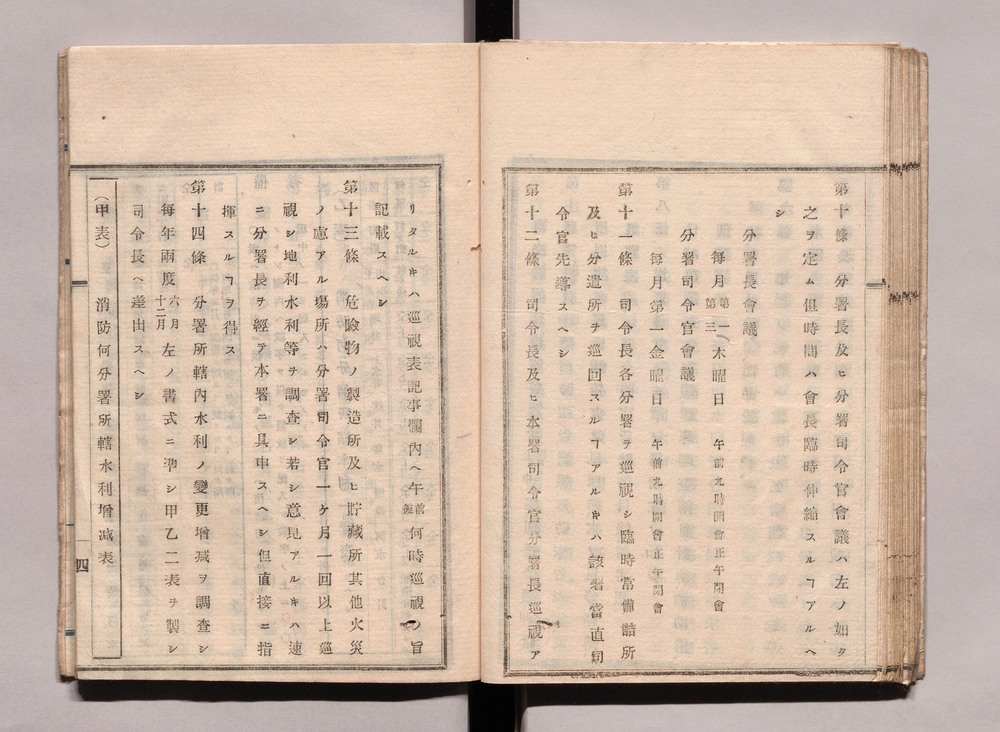 第十條 分署長及ヒ分署司令官會議ハ左ノ如ク
之ヲ定ム但時間ハ會長臨時伸縮スルヿアルヘ
シ
分署長會議
每月第一第三木曜日 午前九時開會正午閉會
分署司令官會議
每月第一金曜日 午前九時開會正午閉會
第十一條 司令長各分署ヲ巡視シ臨時常備詰所
及ヒ分遣所ヲ巡回スルヿアルキハ該署當直司
令官先導スヘシ
第十二條 司令長及ヒ本署司令官分署長巡視ア
リタルキハ巡視表記事欄內ヘ午前後何時巡視ノ旨
記載スヘシ
第十三條 危險物ノ製造所及ヒ貯藏所其他火災
ノ慮アル塲所ハ分署司令官一ケ月一回以上巡
視シ地利水利等ヲ調查シ若シ意見アルキハ速
ニ分署長ヲ經テ本署ニ具申スヘシ但直接ニ指
揮スルヿヲ得ス
第十四條 分署所轄內水利ノ變更增减ヲ調查シ
每年兩度六月十二月左ノ書式ニ準シ甲乙二表ヲ製シ
司令長ヘ差出スヘシ
(甲表) 消防何分署所轄水利增减表
四